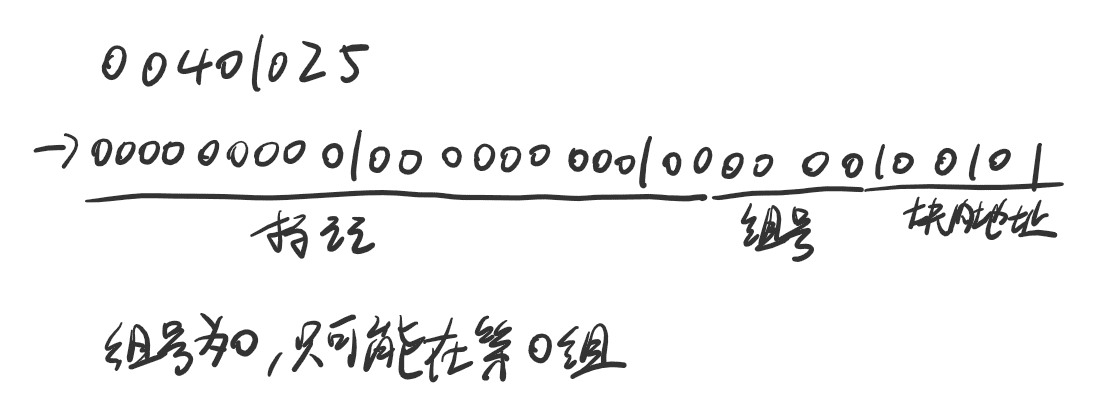 00401025
→0000 0000 0100 0000 0001 0000 0010 0101
标记 组号 块内地址
组号为0,只可能在第0组